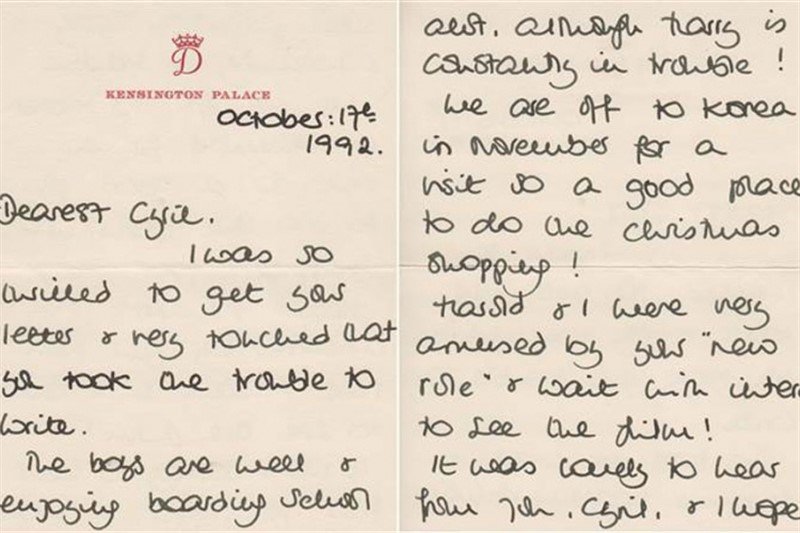 D
KENSINGTON PALACE
October: 17th
1992.
Dearest Cyril.
I was so
thrilled to get your
letter & very touched that
you took the trouble to
write.
The boys are well &
enjoying boarding school
alot, although Harry is
constantly in trouble!
We are off to Korea
in November for a
visit so a good place
to do the Christmas
shopping!
Harold & I were very
amused by your "new
role" & wait with inter
to see the film!
It was lovely to hear
from you, Cyril, & I hope